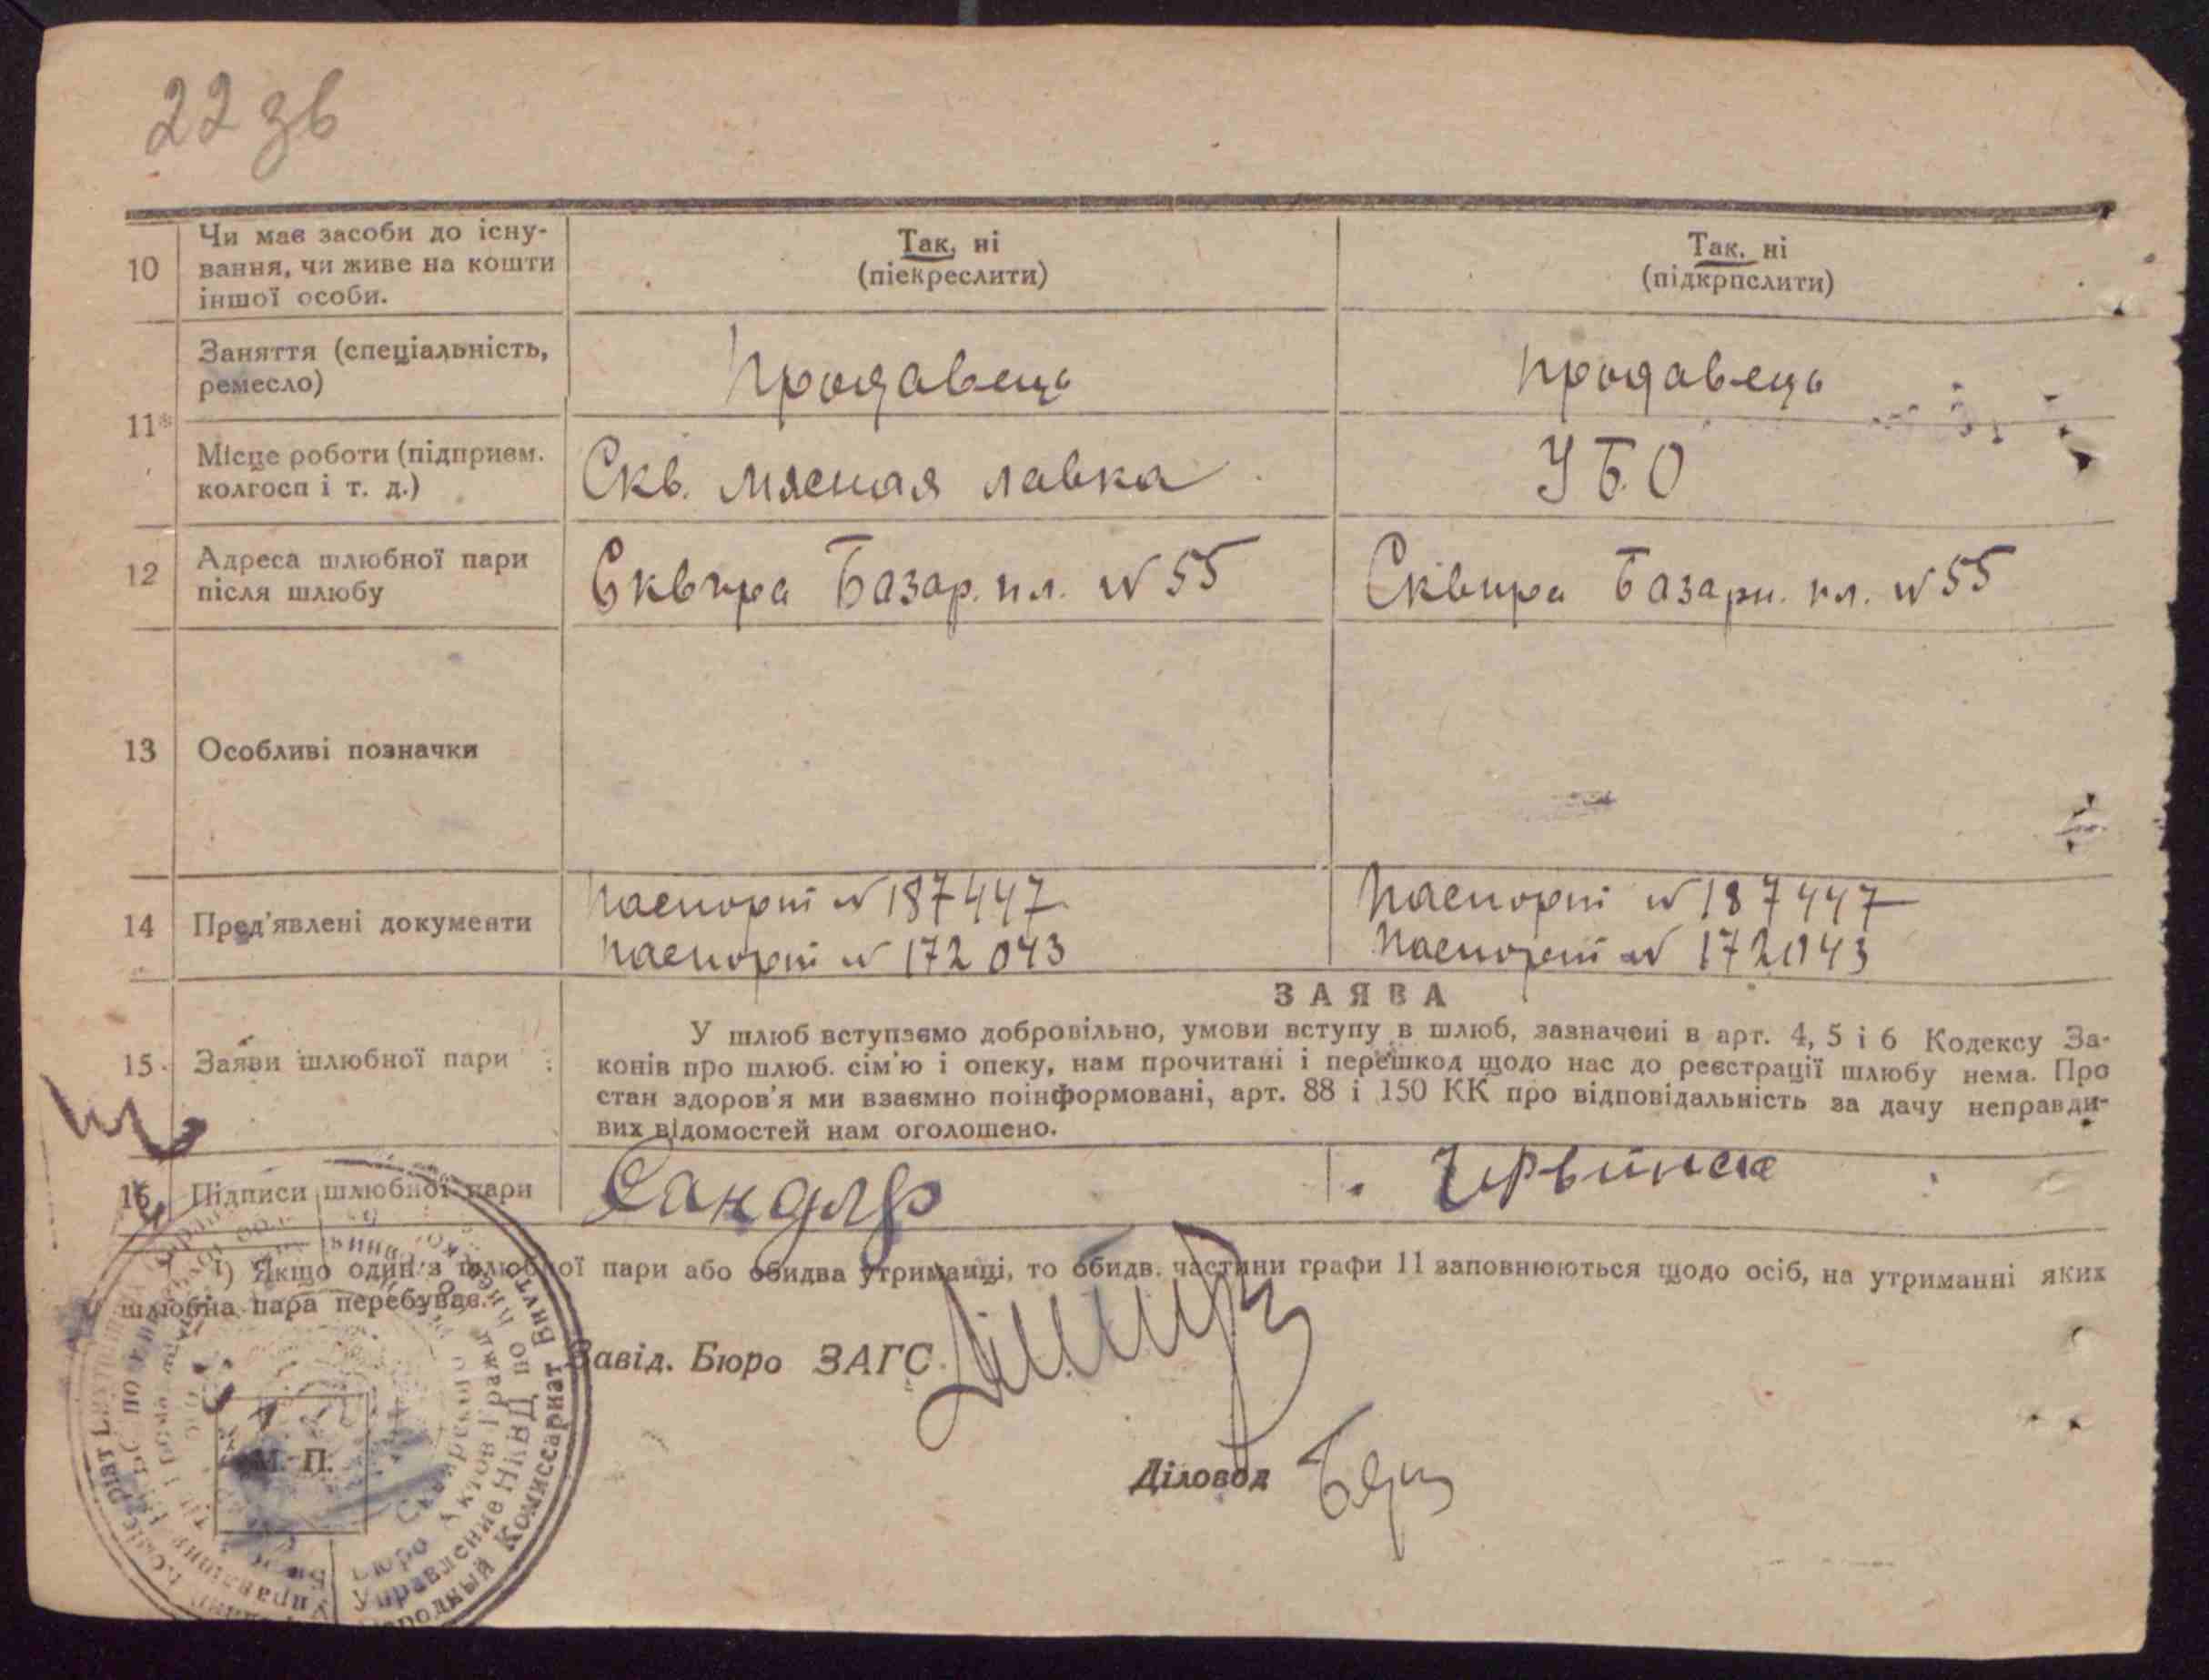 22 зв
10
Чи має засоби до існу-
вання, чи живе на кошти
іншої особи.
Так, ні
(піекреслити)
Так, ні
(підкрпслити)
11*
Заняття (спеціальність,
ремесло)
продавець
продавець
Місце роботи (підприєм.
колгосп і т. д.)
Скв. мясная лавка
УБО
12
Адреса шлюбної пари
після шлюбу
Сквира Базар. пл. N 55
Сквира Базарн. пл. N 55
13
Особливі позначки
14
Пред'явлені документи
паспорт N 187447
паспорт N 172043
паспорт N 187447
паспорт N 172043
15
Заяви шлюбної пари
ЗАЯВА
У шлюб вступаємо добровільно, умови вступу в шлюб, зазначені в арт. 4, 5 і 6 Кодексу За-
конів про шлюб. сім'ю і опеку, нам прочитані і перешкод щодо нас до реєстрації шлюбу нема. Про
стан здоров'я ми взаємно поінформовані, арт. 88 і 150 КК про відповідальність за дачу неправди-
вих відомостей нам оголошено.
16
Підписи шлюбної пари
Сандлер
1) Якщо один з шлюбної пари або обидва утриманці, то обидв. частини графи 11 заповнюються щодо осіб, на утриманні яких
шлюбна пара перебуває.
Завід. Бюро ЗАГС
Діловод
М. П.
Бюро Актов Гражд
Управление НКВД по
Народный Комиссариат Внутр